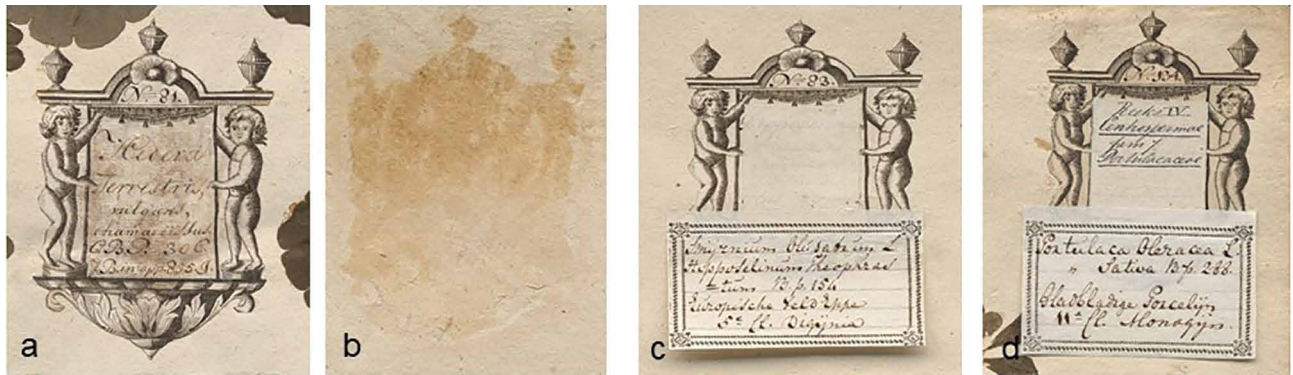 No. 81.
Hedera
Terrestris,
vulgaris,
C.B.P. 306.
a
b
No. 83.
Smyrnium Olusatrum L.
Hipposelinum Theophras
tum B.p. 154
Europische
5e Cl. Digijnia
c
No. 134.
Reeks IV
Centrospermae
fam. 7
Portulacaceae
Portulaca Oleracea L.
" Sativa B.p. 288.
Porcelijn
11e Cl. Monogyn.
d